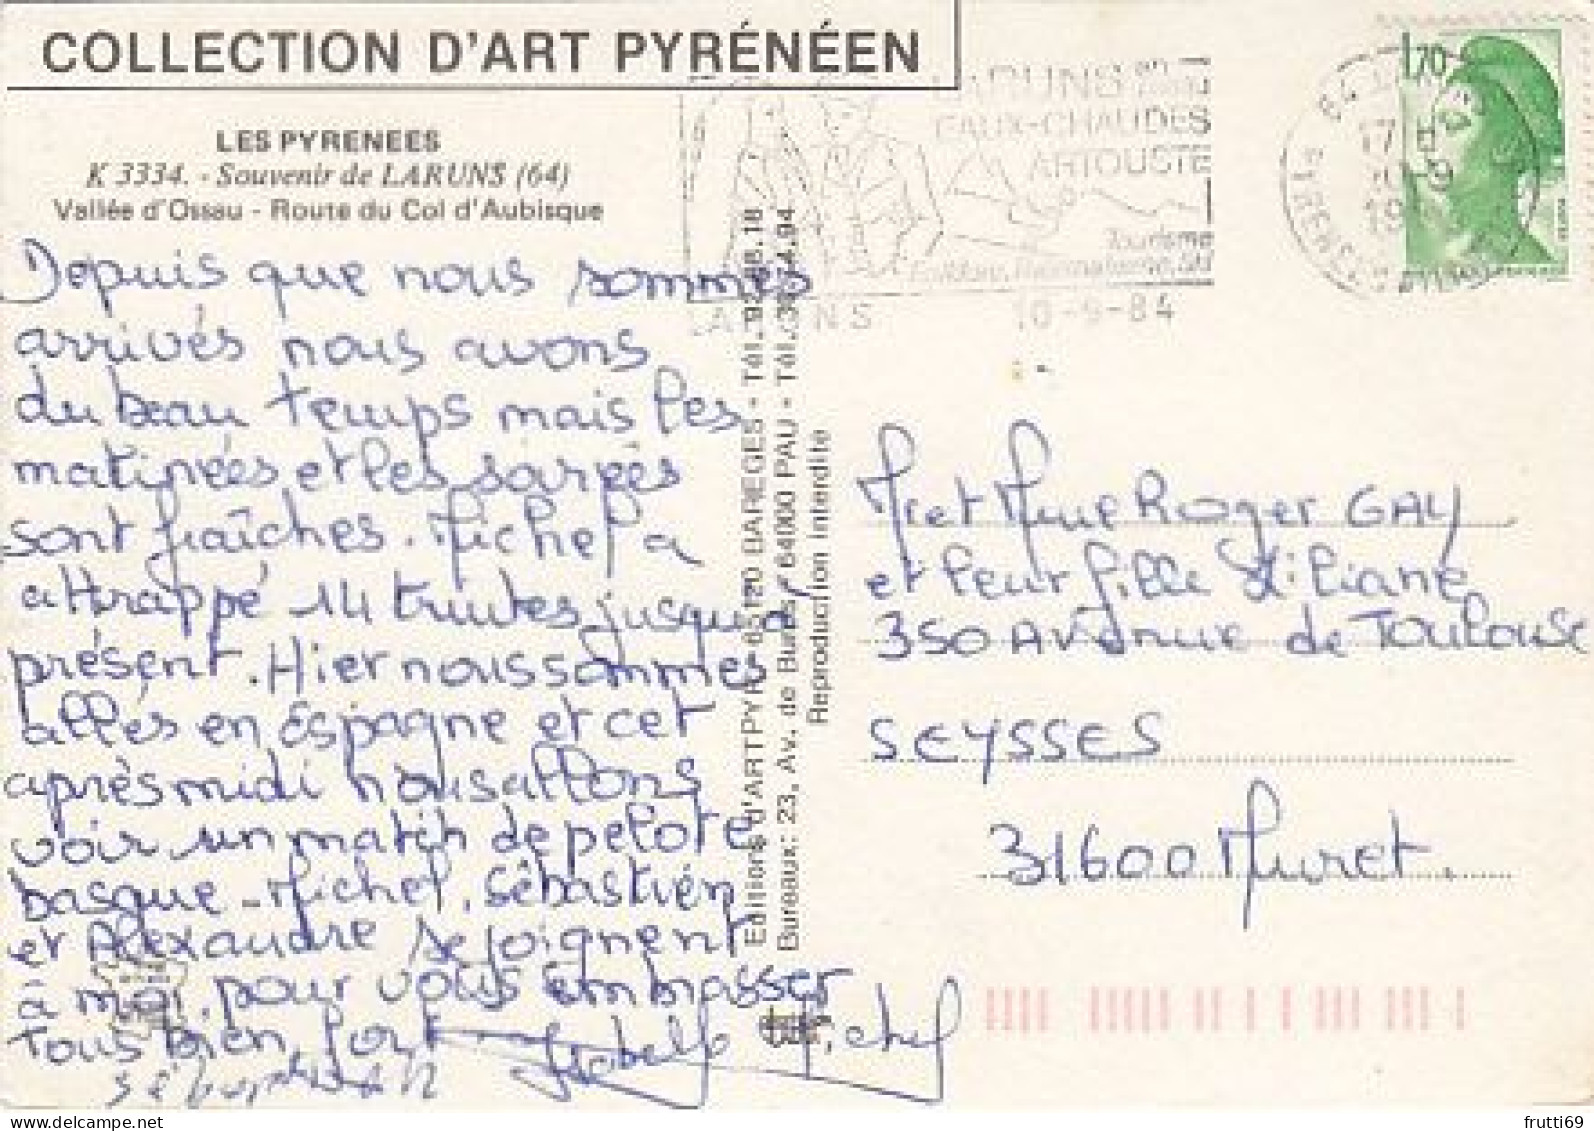 COLLECTION D'ART PYRÉNÉEN
LES PYRENEES
K 3334. - Souvenir de LARUNS (64)
Vallée d'Ossau - Route du Col d'Aubisque
Depuis que nous sommes
arrivés nous avons
du beau temps mais les
matinées et les soirées
sont fraîches. Michel a
attrappé 14 truites jusqu'à
présent. Hier nous sommes
allés en Espagne et cet
après midi nous allons
voir un match de pelote
basque. Michel, Sébastien
et Alexandre se joignent
à moi pour vous embrasser
Tous bien fort
Michel
Editions D'ARTPYR - 65120 BAREGES - Tél. 92.68.18
Bureaux: 23, Av. de Buros - 64000 PAU - Tél.
Reproduction interdite
LARUNS en
EAUX-CHAUDES
ARTOUSTE
Tourisme
Folklore, Thermalisme, Ski
LARUNS 10-9-84
1,70
Mr et Mme Roger GAY
et leur fille Liliane
350 Avenue de Toulouse
SEYSSES
31600 Muret.
frutti69